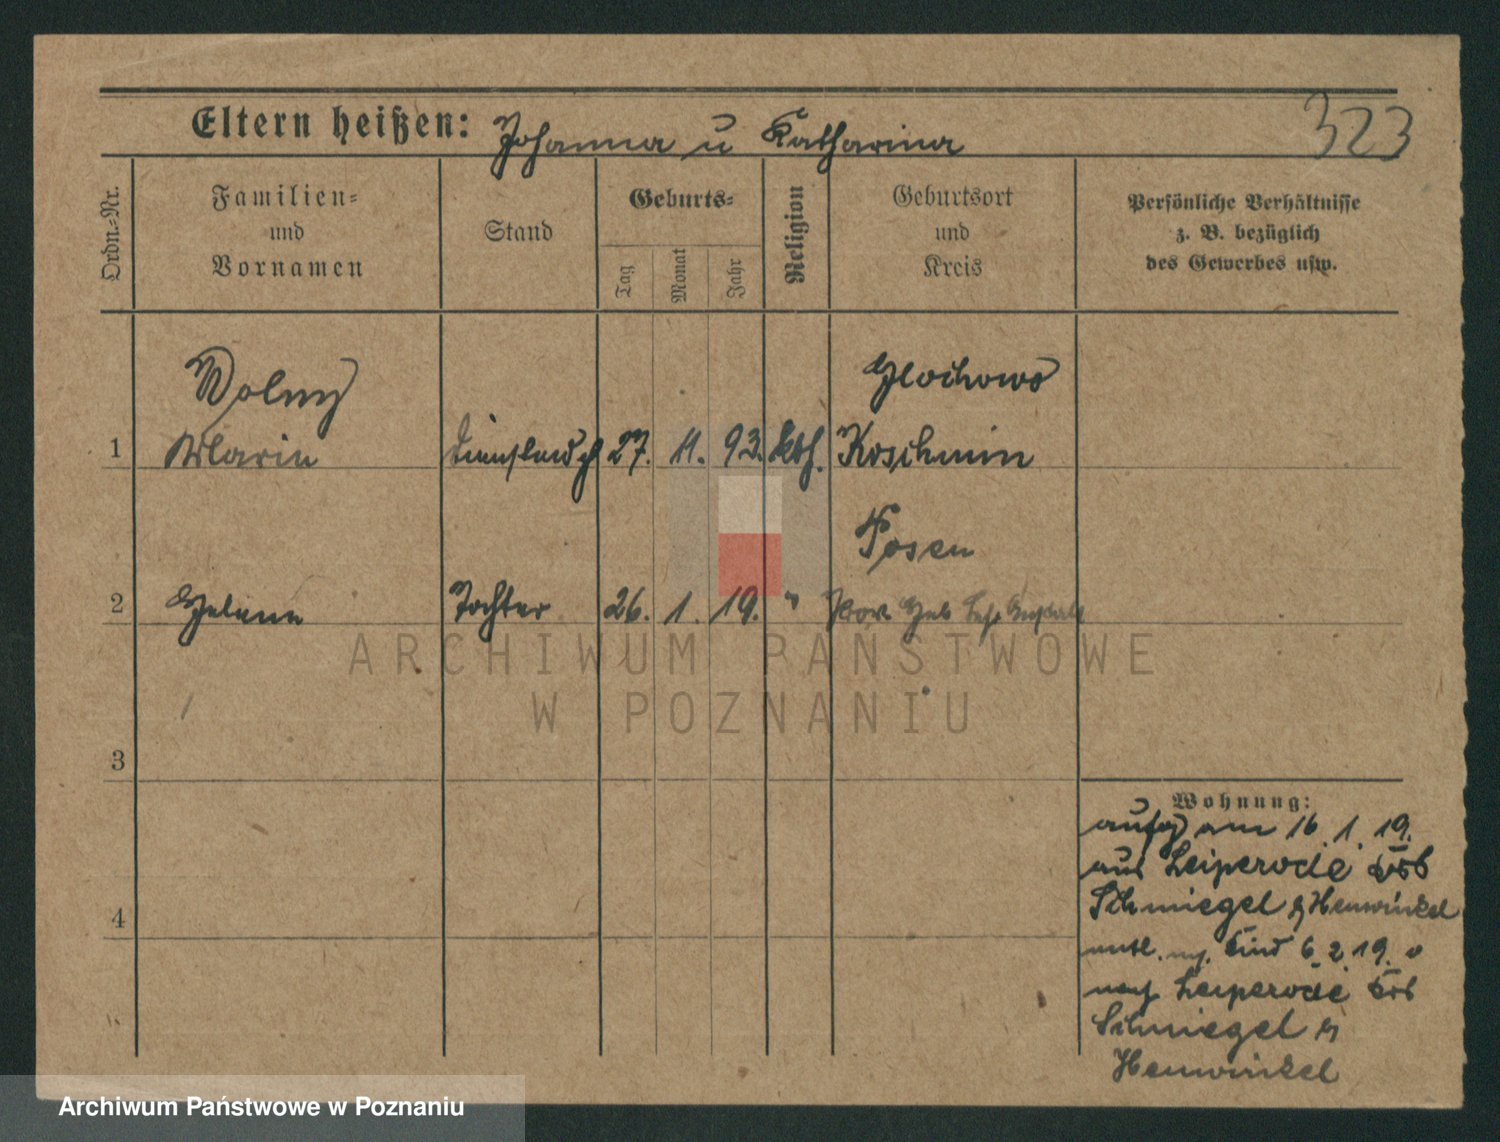 Eltern heißen: Johanna u Katharina
323
Ordn.-Nr.
Familien-
und
Vornamen
Stand
Geburts-
Tag
Monat
Jahr
Religion
Geburtsort
und
Kreis
Persönliche Verhältnisse
z. B. bezüglich
des Gewerbes usw.
Wolny
Glochowo
1 Marie 27. 11. 93. kth. Koschmin
Posen
2 Helene Tochter 26. 1. 19. "
ARCHIWUM PAŃSTWOWE
W POZNANIU
3
Wohnung:
am 16. 1. 19.
aus Leiperode
4 Schmiegel
Kind 6. 2. 19.
nach Leiperode
Schmiegel
Archiwum Państwowe w Poznaniu